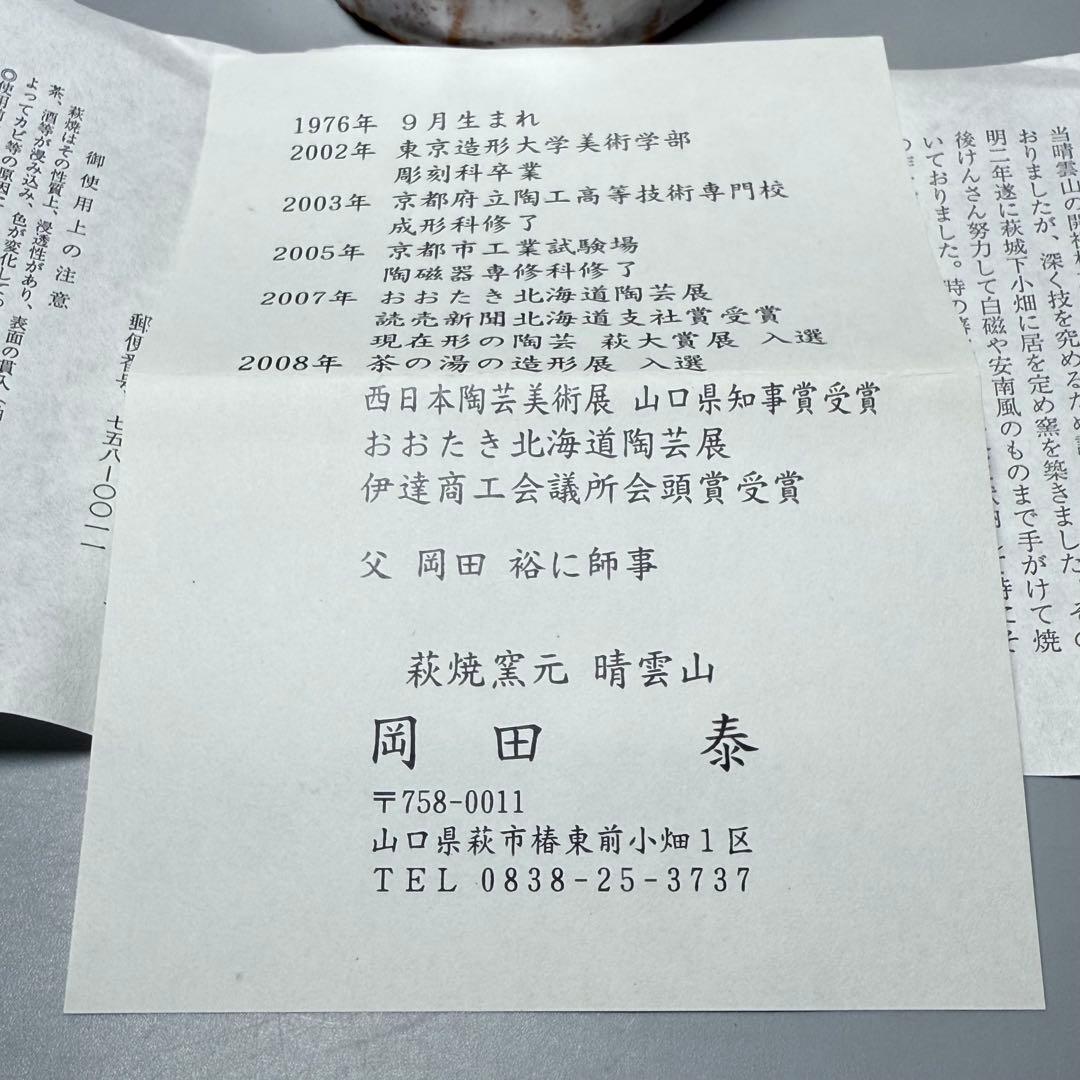 1976年 9月生まれ
2002年 東京造形大学美術学部
彫刻科卒業
2003年 京都府立陶工高等技術専門校
成形科修了
2005年 京都市工業試験場
陶磁器専修科修了
2007年 おおたき北海道陶芸展
読売新聞北海道支社賞受賞
現在形の陶芸 萩大賞展 入選
2008年 茶の湯の造形展 入選
西日本陶芸美術展 山口県知事賞受賞
おおたき北海道陶芸展
伊達商工会議所会頭賞受賞
父 岡田 裕に師事
萩焼窯元 晴雲山
岡田 泰
〒758-0011
山口県萩市椿東前小畑1区
TEL 0838-25-3737
当晴雲山の開祖
おりましたが、深く技を究めるため
明二年遂に萩城下小畑に居を定め窯を築きました。その
後けんさん努力して白磁や安南風のものまで手がけて焼
いておりました。時の
御使用上の注意
萩焼はその性質上、浸透性があり、表面の貫入
茶、酒等が浸み込み、色が変化して
よってカビ等の原因
◎使用前
郵便番号 七五八-〇〇一一